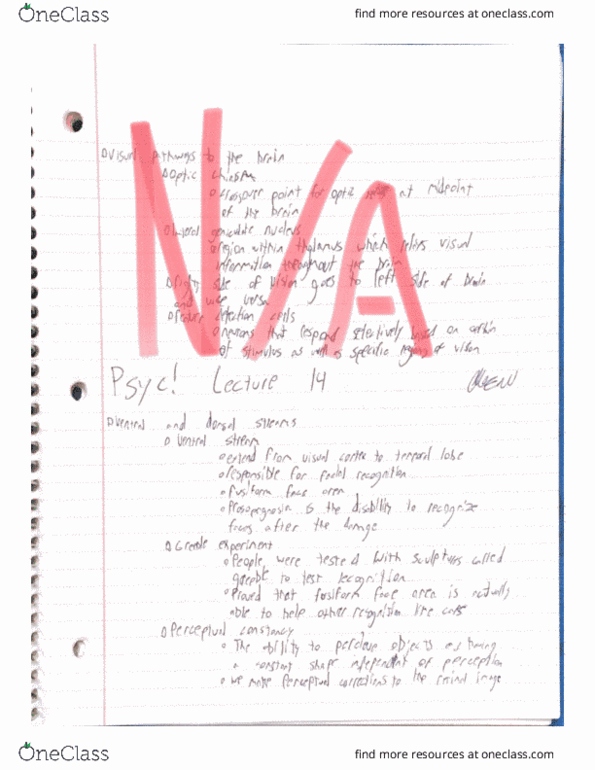 OneClass find more resources at oneclass.com
Visual pathways to the brain
Optic chiasm
crossover point for optic at midpoint
of the brain
lateral geniculate nucleus
region within thalamus which relays visual
information throughout the brain
right side of vision goes to left side of brain
and vice versa
feature detection cells
neurons that respond selectively based on
of stimulus as well as specific regions of vision
N/A
Psyc! Lecture 14
Ventral and dorsal streams
Ventral stream
extend from visual cortex to temporal lobe
responsible for facial recognition
fusiform face area
Prosopagnosia is the disability to recognize
faces after the damage
Greeble experiment
People were tested with sculptures called
greeble to test recognition
Proved that fusiform face area is actually
able to help other recognition like cars
Perceptual constancy
The ability to perceive objects as having
a constant shape independent of perception
we make perceptual corrections to the retinal image
OneClass find more resources at oneclass.com